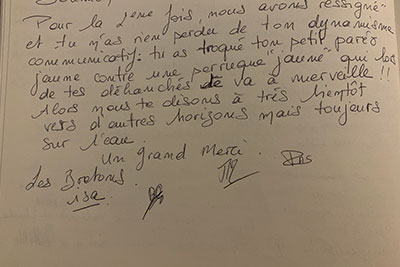 Pour la 2ème fois, nous avons ressigné
et tu n'as rien perdu de ton dynamisme
communicatif. tu as troqué ton petit paréo
jaune contre une perruque "jaune" qui lors
de tes déhanchés te va à merveille !!
Alors nous te disons à très bientôt
vers d'autres horizons mais toujours
sur l'eau.
Un grand Merci.
Les Bretons.
isa